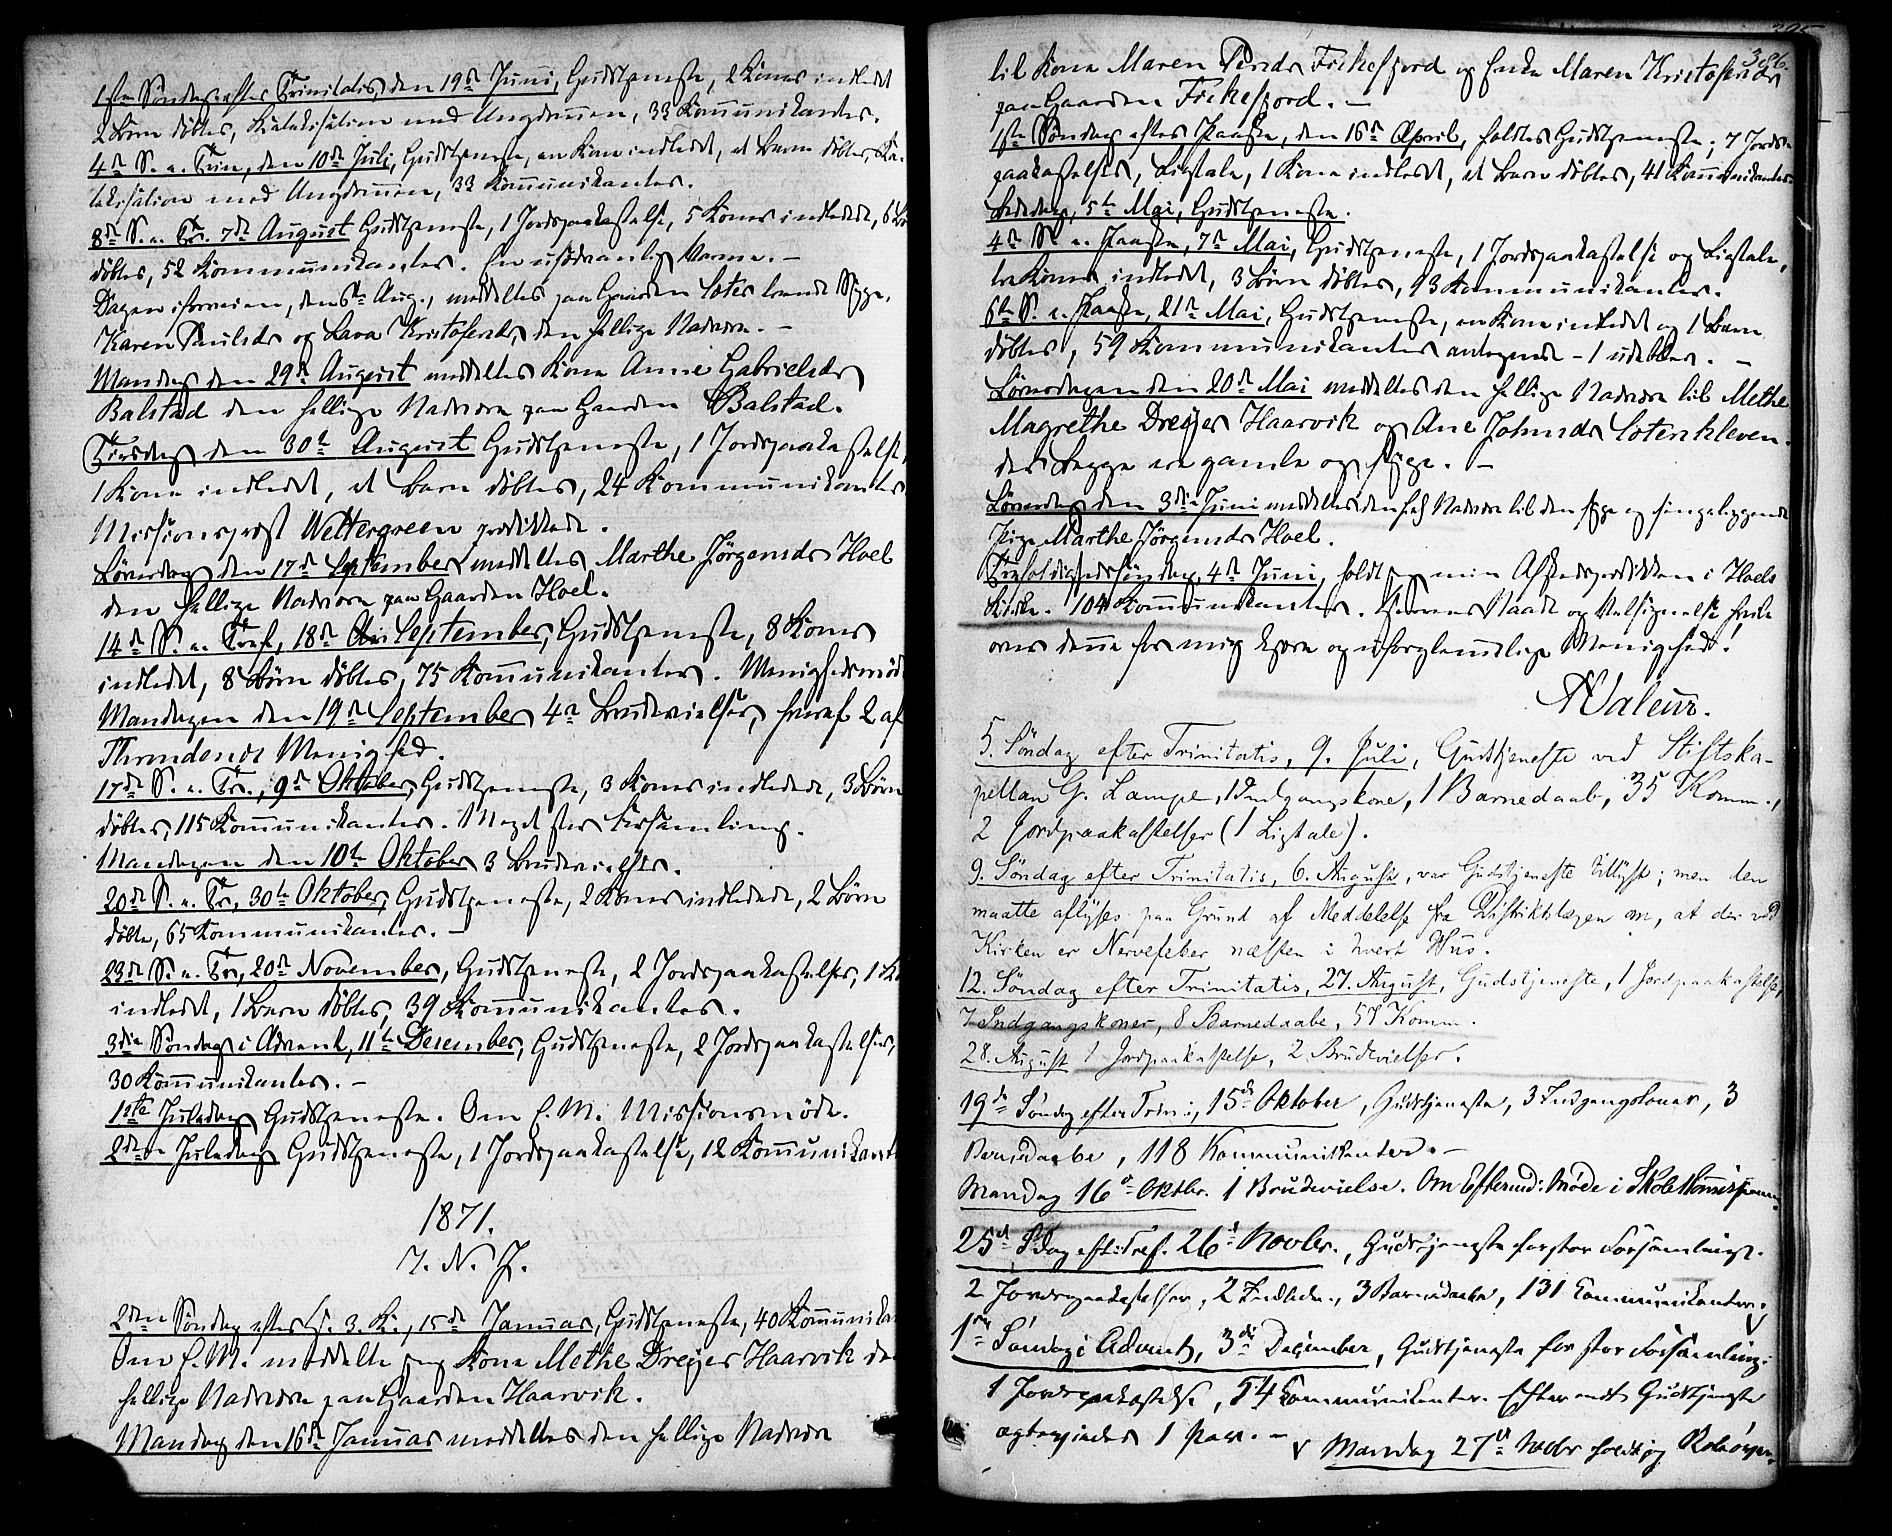 1ste Søndag efter Trinitatis, den 19de Juni, Gudstjeneste, 2 Koner indledet
2 Børn døbtes, Katekisation med Ungdommen, 33 Kommunikanter.
4de S. e. Trin, den 10de Juli, Gudstjeneste, en Kone indledet, et Barn døbtes, Ka-
tekisation med Ungdommen, 33 Kommunikanter.
8de S. e. Tr. 7de August Gudstjeneste, 1 Jordspaakastelse, 5 Koner indledede, 6 Bø
døbtes, 52 Kommunikanter. En usædvanlig Varme. –
Dagen iforveien, den 6te Aug., meddeltes paa Gaarden Soter tvende Syge,
Karen Paulsdr og Lava Kristofersdr, den hellige Nadvere. –
Mandag den 29de August meddeltes Kone Anne Gabrielsdr
Balstad den hellige Nadvere paa Gaarden Balstad.
Tirsdag den 30te August Gudstjeneste, 1 Jordspaakastelse,
1 Kone indledet, et Barn døbtes, 24 Kommunikanter
Missionsprest Wettergreen prædikede.
Løverdag den 17de September meddeltes Marthe Jørgensdr Hoel
den hellige Nadvere paa Gaarden Hoel.
14de S. e. Tref, 18de September, Gudstjeneste, 8 Koner
indledet, 8 Børn døbtes, 75 Kommunikanter. Menighedsmød
Mandagen den 19de September 4re Brudevielser, hvoraf 2 af
Throndenes Menighed.
17de S. e. Tr., 9de Oktober, Gudstjeneste, 3 Koner indledede, 3 Børn
døbtes, 115 Kommunikanter. Meget stor Forsamling.
Mandagen den 10de Oktober 3 Brudevielser.
20de S. e. Tr, 30te Oktober, Gudstjeneste, 2 Koner indledede, 2 Børn
døbte, 65 Kommunikanter. –
23de S. e. Tr, 20de November, Gudstjeneste, 2 Jordspaakastelser, 1 Ko
indledet, 1 Barn døbtes, 39 Kommunikanter.
3die Søndag i Advent, 11te Desember, Gudstjeneste, 2 Jordspaakastelser,
30 Kommunikanter. –
1ste Juledag Gudstjeneste. Om E. M. Missionsmøde.
2den Juledag Gudstjeneste, 1 Jordspaakastelse, 12 Kommunikant
1871.
I. N. J.
2den Søndag efter H. 3. K., 15de Januar, Gudstjeneste, 40 Kommunika
Om E. M. meddelte jeg Kone Methe Dreyer Haarvik den
hellige Nadvere paa Gaarden Haarvik.
Mandag den 16de Januar meddeltes den hellige Nadvere
396.
til Kone Maren Persdr Fiskefjord og Enke Maren Kristofersdr
paa Gaarden Fiskefjord. –
1ste Søndag efter Paaske, den 16de April, holdtes Gudstjeneste; 7 Jords-
paakastelser, Ligtale, 1 Kone indledet, et Barn døbtes, 41 Kommunikanter.
Bededag, 5te Mai, Gudstjeneste.
4de S. e. Paaske, 7de Mai, Gudstjeneste, 1 Jordspaakastelse og Ligtale,
tre Koner indledet, 3 Børn døbtes, 93 Kommunikanter.
6te S. e. Paaske, 21de Mai, Gudstjeneste, en Kone indledet og 1 Barn
døbtes, 59 Kommunikanter antegnede – 1 udeblev. –
Løverdagen den 20de Mai meddeltes den hellige Nadvere til Methe
Magrethe Dreyer Haarvik og Ane Johnsdr Soterkleven
der begge ere gamle og syge. –
Løverdag den 3die Juni meddeltes den hel Nadvere til den syge og sengeliggende
Pige Marthe Jørgensdr Hoel.
Trefoldighedssøndag, 4de Juni, holdt jeg min Afskedsprædiken i Hoels
Kirke. 104 Kommunikanter. Herrens Naade og Velsignelse hvile
over denne for mig kjære og uforglemmelige Menighed!
Valeur.
5. Søndag efter Trinitatis, 9. Juli, Gudstjeneste ved Stiftska-
pellan G. Lampe, 1 Indgangskone, 1 Barnedaab, 35 Komm.,
2 Jordpaakastelser (1 Ligtale).
9. Søndag efter Trinitatis, 6. August, var Gudstjeneste tillyst; men den
maatte aflyses paa Grund af Meddelelse fra Distriktslægen om, at der ved
Kirken er Nervefeber næsten i hvert Hus.
12. Søndag efter Trinitatis, 27. August, Gudstjeneste, 1 Jordpaakastelse,
7 Indgangskoner, 8 Barnedaabe, 57 Komm.
28. August 1 Jordpaakastelse, 2 Brudevielser.
19de Søndag efter Trin:, 15de Oktober, Gudstjeneste, 3 Indgangskoner, 3
Barnedaabe, 118 Kommunikanter. –
Mandag 16de Oktbr. 1 Brudevielse. Om Eftermd: Møde i
25de Sdag eft: Tref. 26de Novbr., Gudstjeneste for stor Forsamling.
2 Jordspaakastelser, 2 Indledn., 3 Barnedaabe, 131 Kommunikanter. v
1ste Søndag i Advent, 3die December, Gudstjeneste for stor Forsamling;
1 Jordspaakastelse, 54 Kommunikanter. Efter endt Gudstjeneste
ægteviedes 1 Par. –
v Mandag 27de Novbr holdt jeg